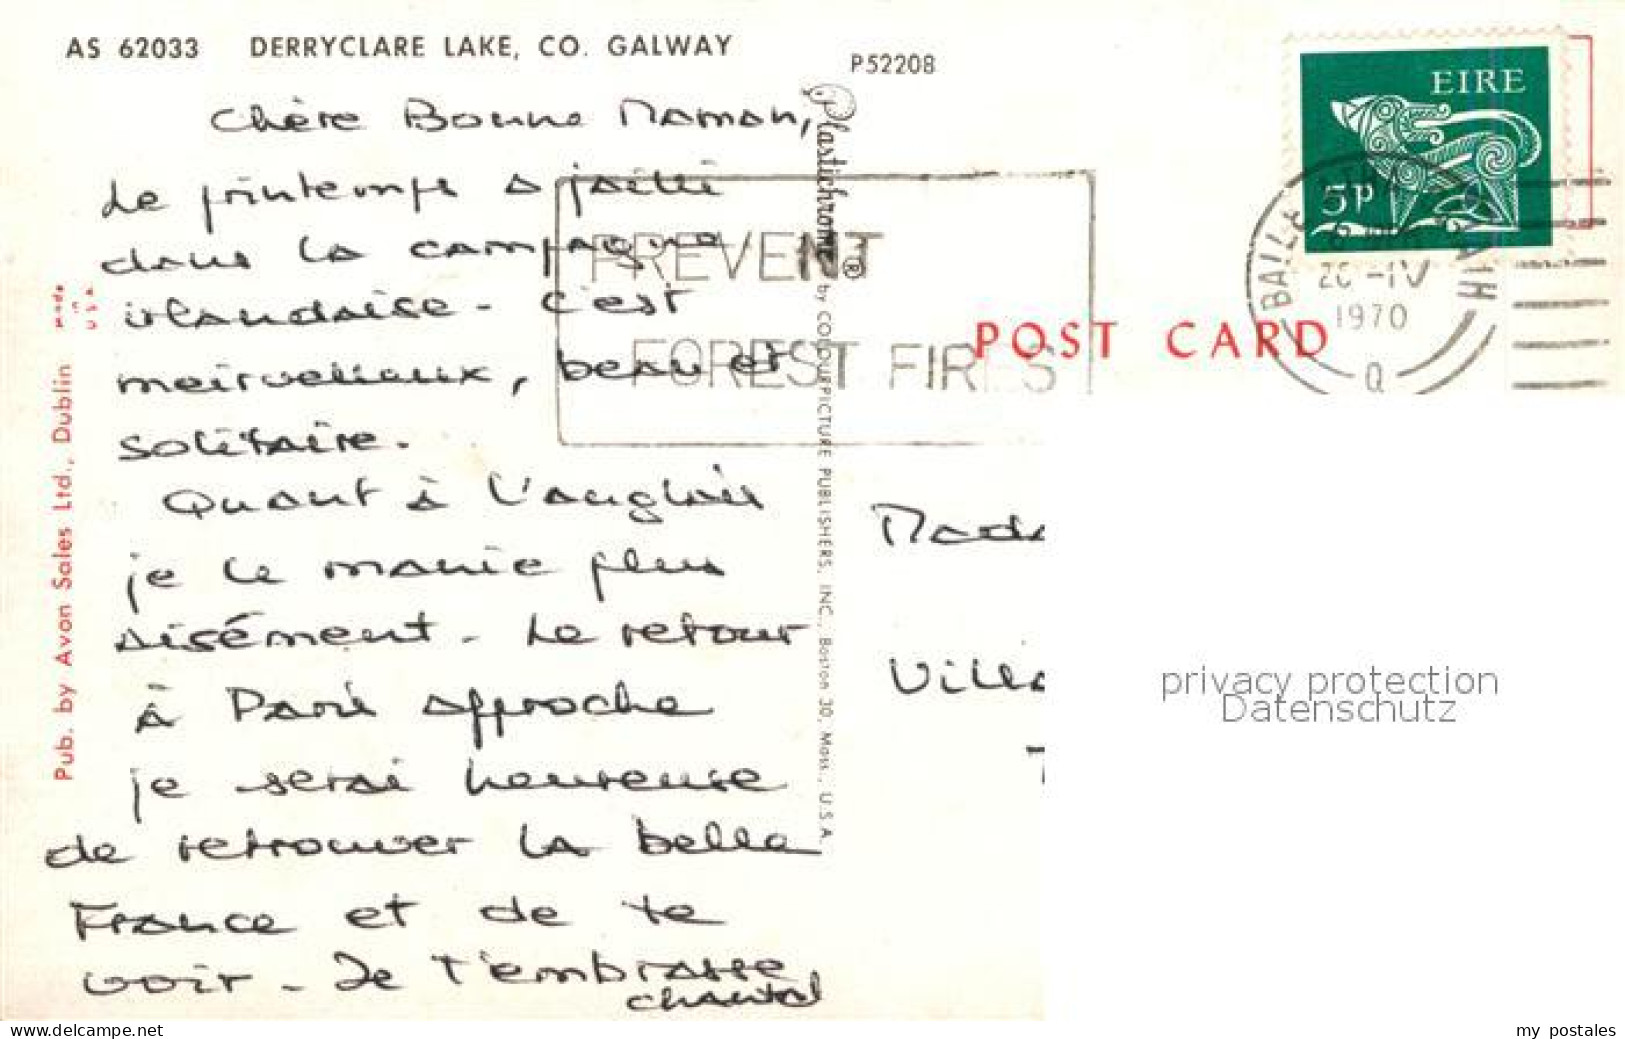 AS 62033 DERRYCLARE LAKE, CO. GALWAY
P52208
Chère Bonne Maman,
Le printemps a jailli
dans la campagne
irlandaise - c'est
meirveilleux, beau et
solitaire.
Quant à l'anglais
je le manie plus
aisément - Le retour
à Paris approche
je serai heureuse
de retrouver la belle
France et de te
voir - Je t'embrasse
Chantal
Pub. by Avon Sales Ltd., Dublin
Made
in
USA
Plastichrome ® by COLOURPICTURE PUBLISHERS, INC., Boston 30, Mass., U.S.A.
PREVENT
FOREST FIRES
POST CARD
EIRE
5p
1970
Q
Mada
Villa
privacy protection
Datenschutz
www.delcampe.net
my postales